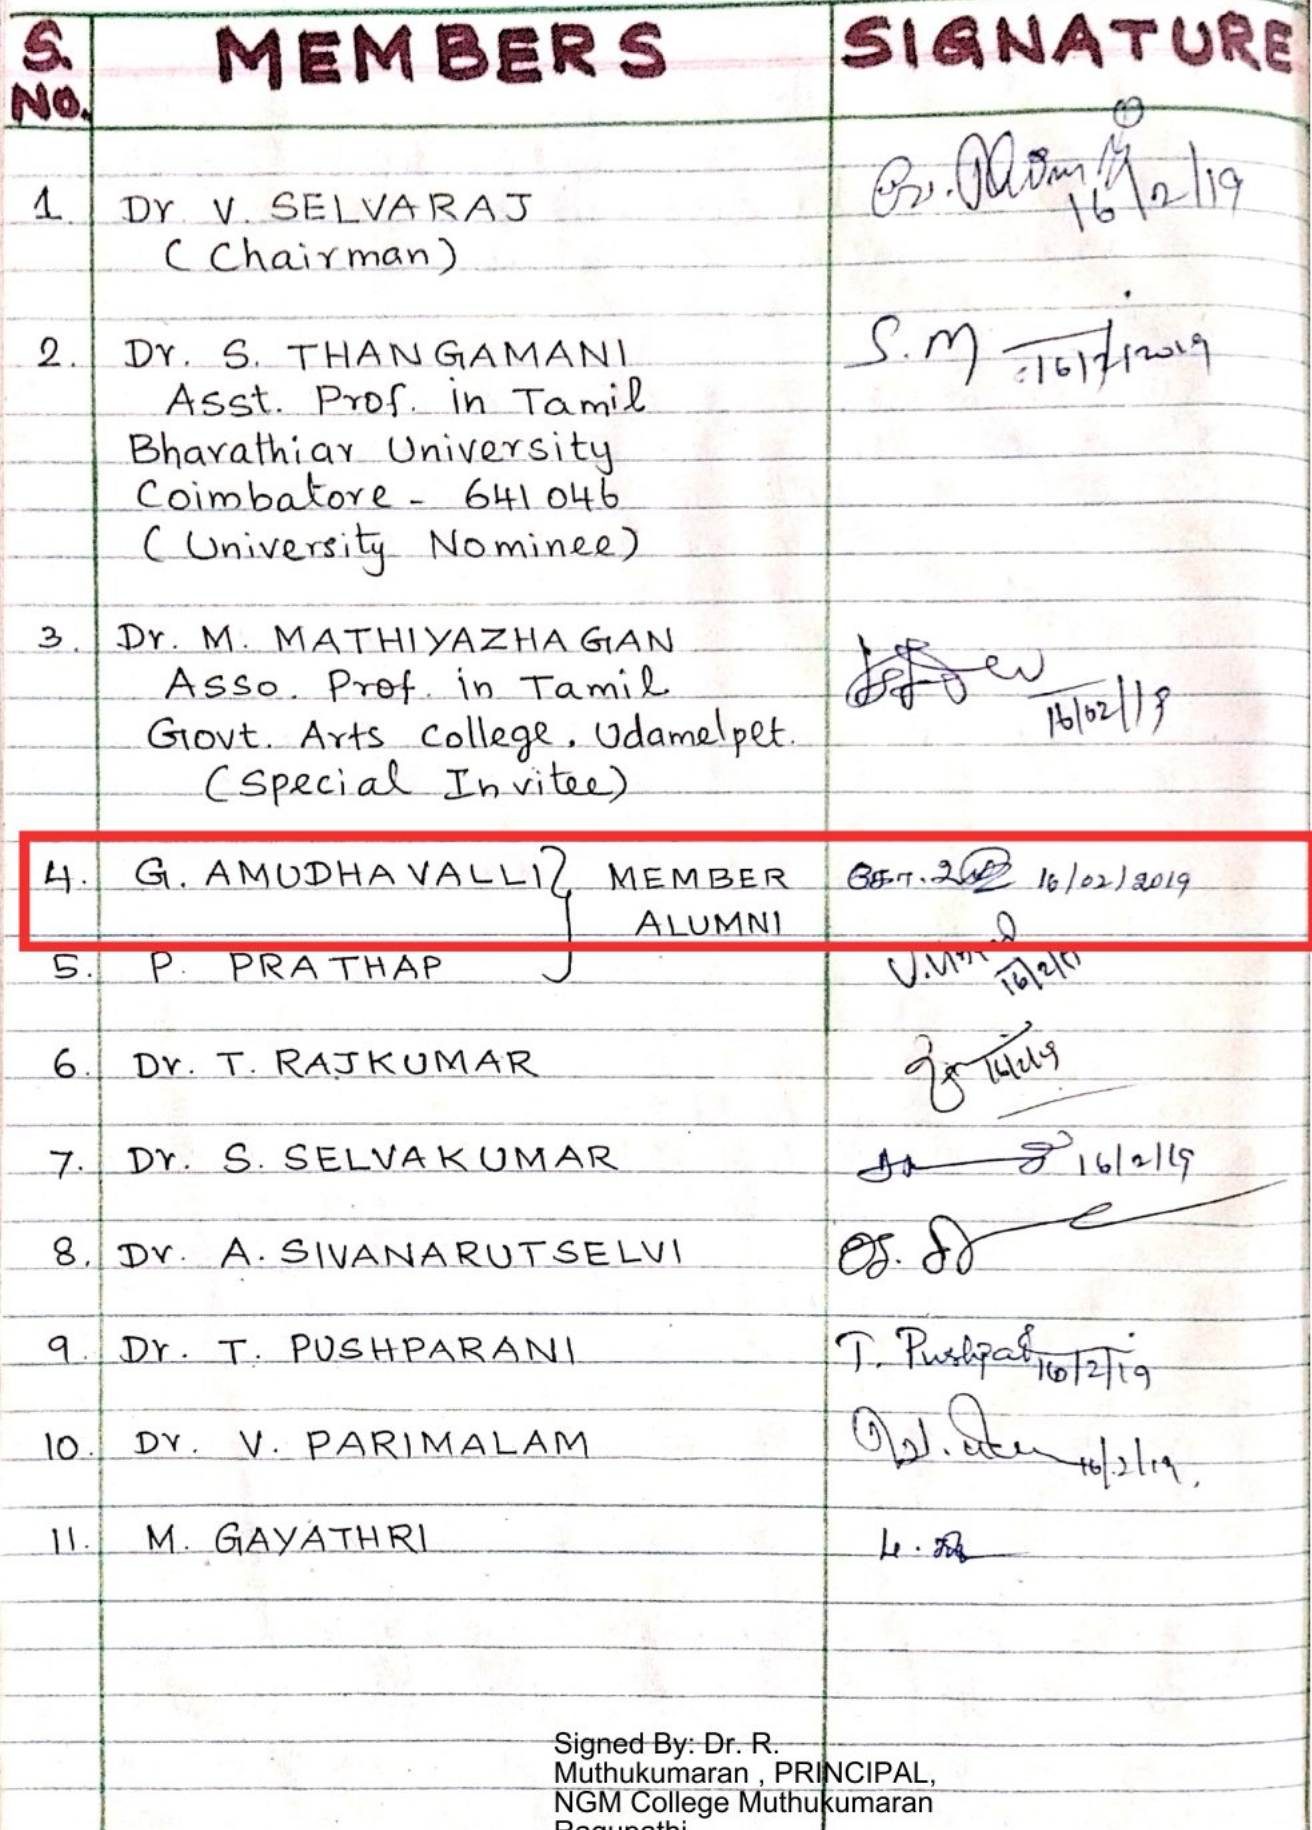 S. NO. MEMBERS SIGNATURE
1. Dr V. SELVARAJ 16/2/19
(Chairman)
2. Dr. S. THANGAMANI S.M 16/2/2019
Asst. Prof. in Tamil
Bharathiar University
Coimbatore - 641 046
(University Nominee)
3. Dr. M. MATHIYAZHAGAN
Asso. Prof. in Tamil 16/02/19
Govt. Arts College, Udamelpet.
(Special Invitee)
4. G. AMUDHAVALLI MEMBER 16/02/2019
ALUMNI
5. P. PRATHAP 16/2/19
6. Dr. T. RAJKUMAR 16/2/19
7. Dr. S. SELVAKUMAR 16/2/19
8. Dr. A. SIVANARUTSELVI
9. Dr. T. PUSHPARANI T. 16/2/19
10. Dr. V. PARIMALAM 16/2/19
11. M. GAYATHRI
Signed By: Dr. R.
Muthukumaran , PRINCIPAL,
NGM College Muthukumaran
Ragupathi